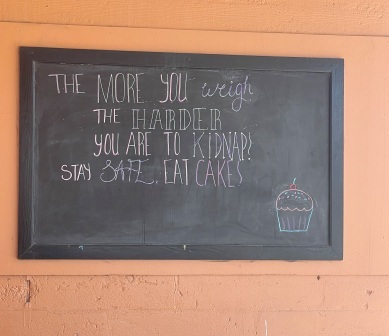 THE MORE YOU weigh
THE HARDER
YOU ARE TO KIDNAP!
STAY SAFE. EAT CAKE!